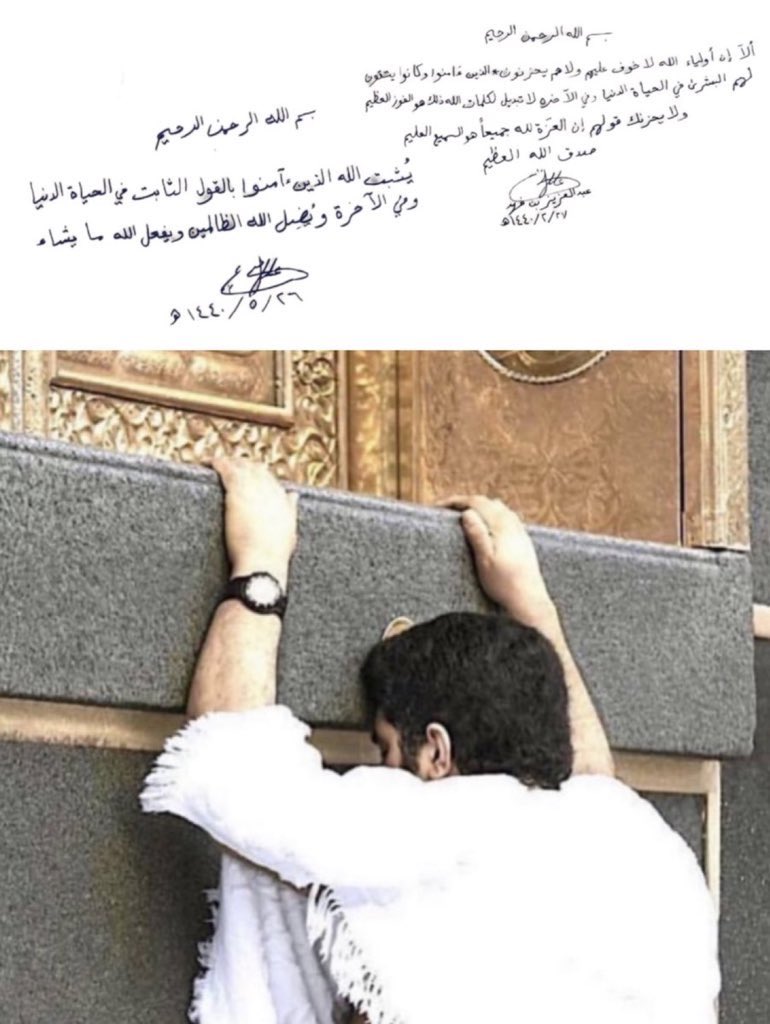 بسم الله الرحمن الرحيم
ألا إن أولياء الله لا خوف عليهم ولا هم يحزنون * الذين ءامنوا وكانوا يتقون
لهم البشرى في الحياة الدنيا وفي الآخرة لا تبديل لكلمات الله ذلك هو الفوز العظيم
ولا يحزنك قولهم إن العزة لله جميعاً هو السميع العليم
صدق الله العظيم
عبدالعزيز بن فهد
١٤٤٠/٢/٢٧هـ
بسم الله الرحمن الرحيم
يُثبت الله الذين ءآمنوا بالقول الثابت في الحياة الدنيا
وفي الآخرة ويُضِل الله الظالمين ويفعل الله ما يشاء
١٤٤٠/٥/٢٦هـ